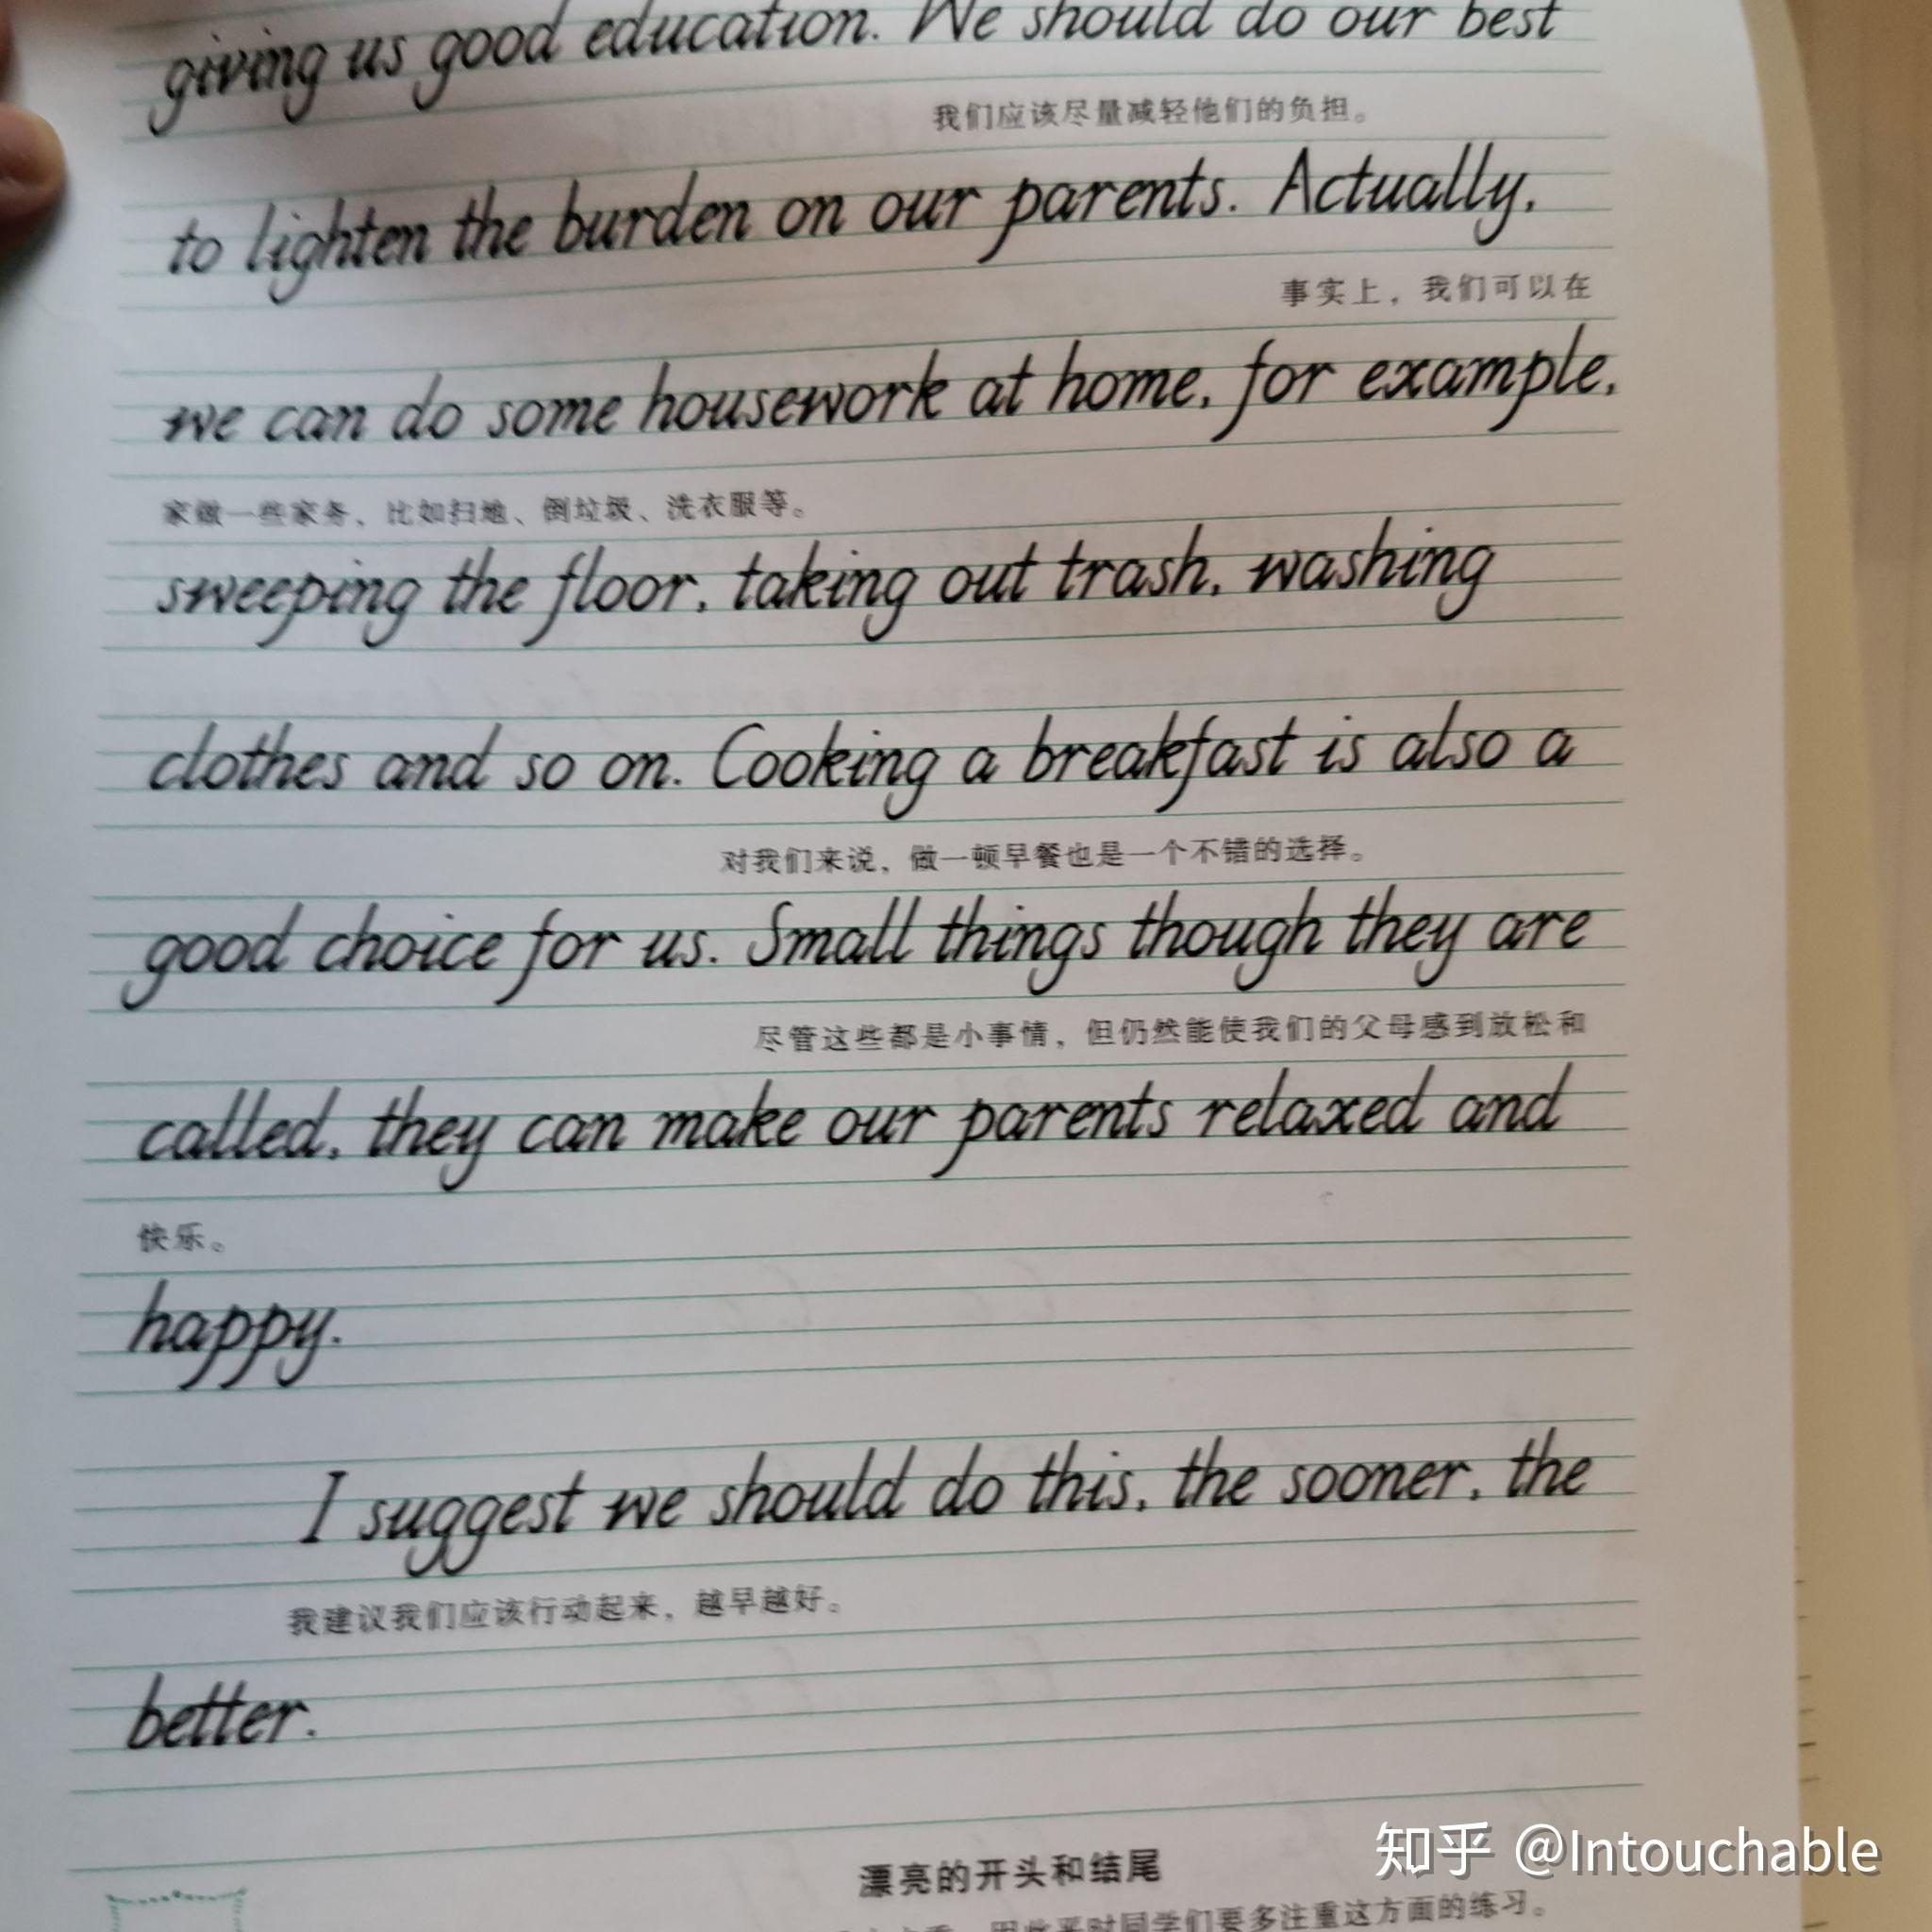 giving us good education. We should do our best
我们应该尽量减轻他们的负担。
to lighten the burden on our parents. Actually,
事实上，我们可以在
we can do some housework at home, for example,
家做一些家务，比如扫地、倒垃圾、洗衣服等。
sweeping the floor, taking out trash, washing
clothes and so on. Cooking a breakfast is also a
对我们来说，做一顿早餐也是一个不错的选择。
good choice for us. Small things though they are
尽管这些都是小事情，但仍然能使我们的父母感到放松和
called, they can make our parents relaxed and
快乐。
happy.
I suggest we should do this, the sooner, the
我建议我们应该行动起来，越早越好。
better.
漂亮的开头和结尾
因此平时同学们要多注重这方面的练习。
知乎 @Intouchable